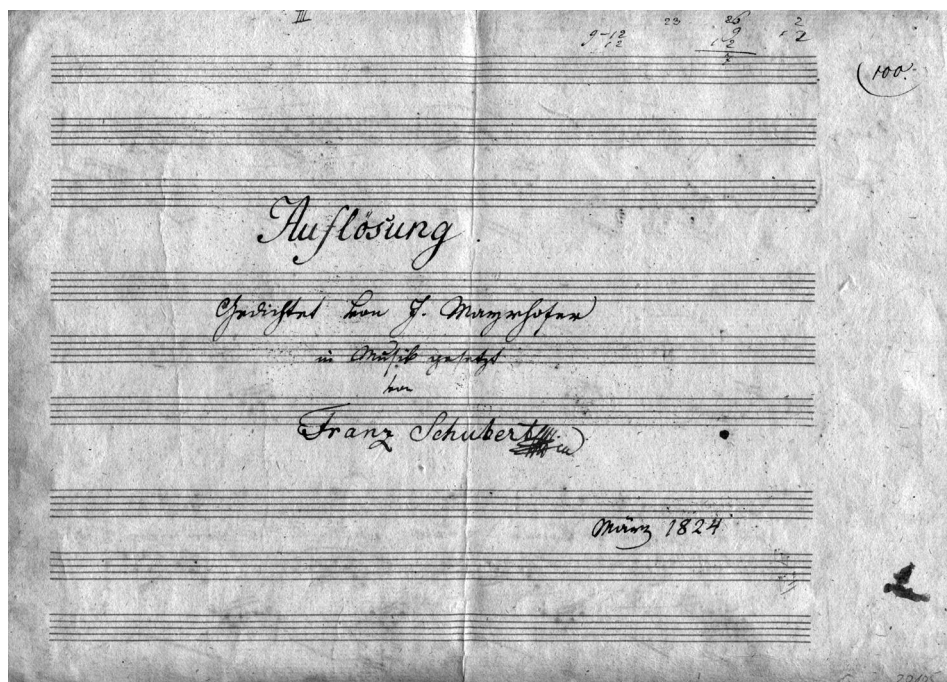 III
23 26 2
9-12 9 2
12 12
(100.)
Auflösung.
Gedichtet von J. Mayrhofer
in Musik gesetzt
von
Franz Schubert
März 1824